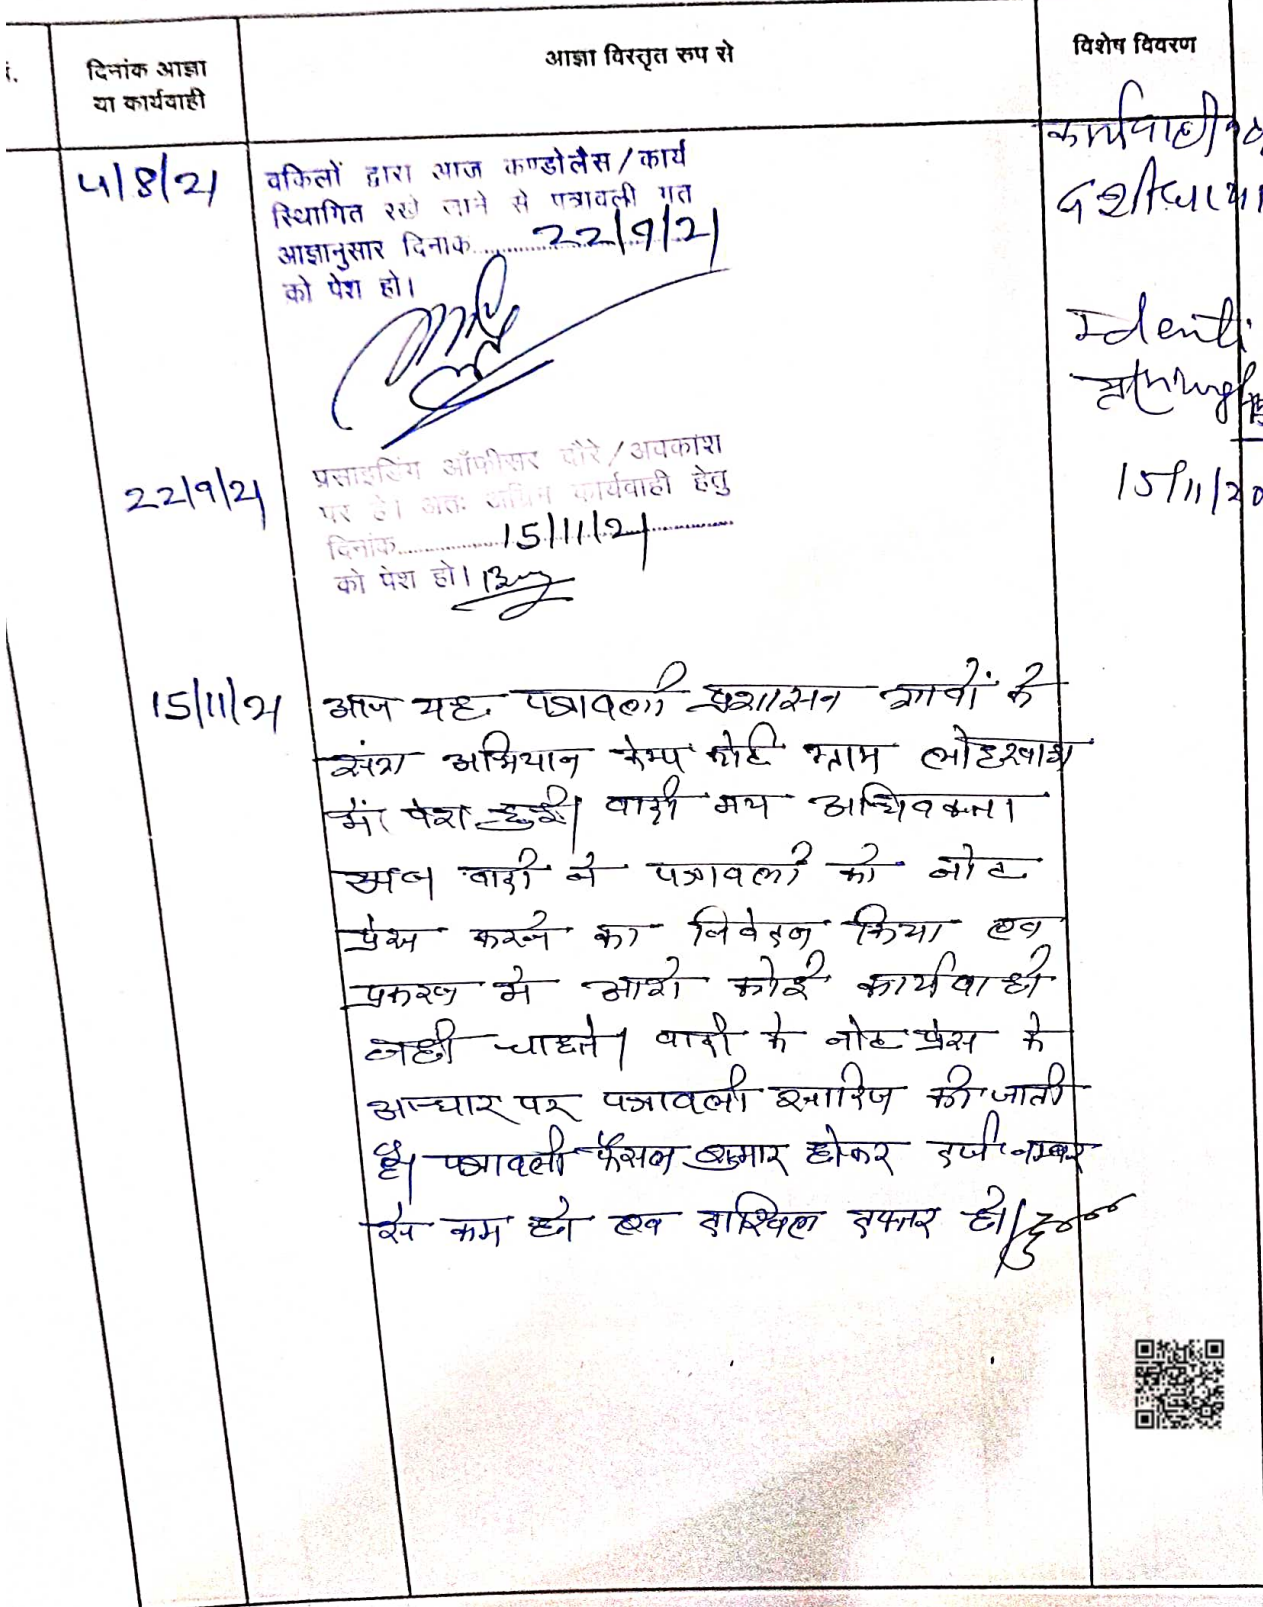 दिनांक आज्ञा
या कार्यवाही
आज्ञा विस्तृत रूप से
विशेष विवरण
4/8/21
वकिलों द्वारा आज कण्डोलैस/कार्य
स्थिागित रखे जाने से पत्रावली गत
आज्ञानुसार दिनाक 22/9/21
को पेश हो।
22/9/21
प्रसाइडिंग ऑफीसर दौरे/अवकाश
पर है। अतः अग्रिम कार्यवाही हेतु
दिनांक 15/11/21
को पेश हो।
15/11/21
आज यह पत्रावली प्रशासन गावों के
संग अभियान केम्प कोर्ट ग्राम
में पेश हुई। वादी मय अधिवक्ता
वादी ने पत्रावली को नोट
प्रेस करने का निवेदन किया एव
प्रकरण मे आगे कोई कार्यवाही
नही चाहते। वादी के नोट प्रेस के
आधार पर पत्रावली खारिज की जाती
है। पत्रावली फैसल शुमार होकर दर्ज नम्बर
से कम हो एव दाखिल दफ्तर हो।
कार्यवाही
Identi
15/11/20